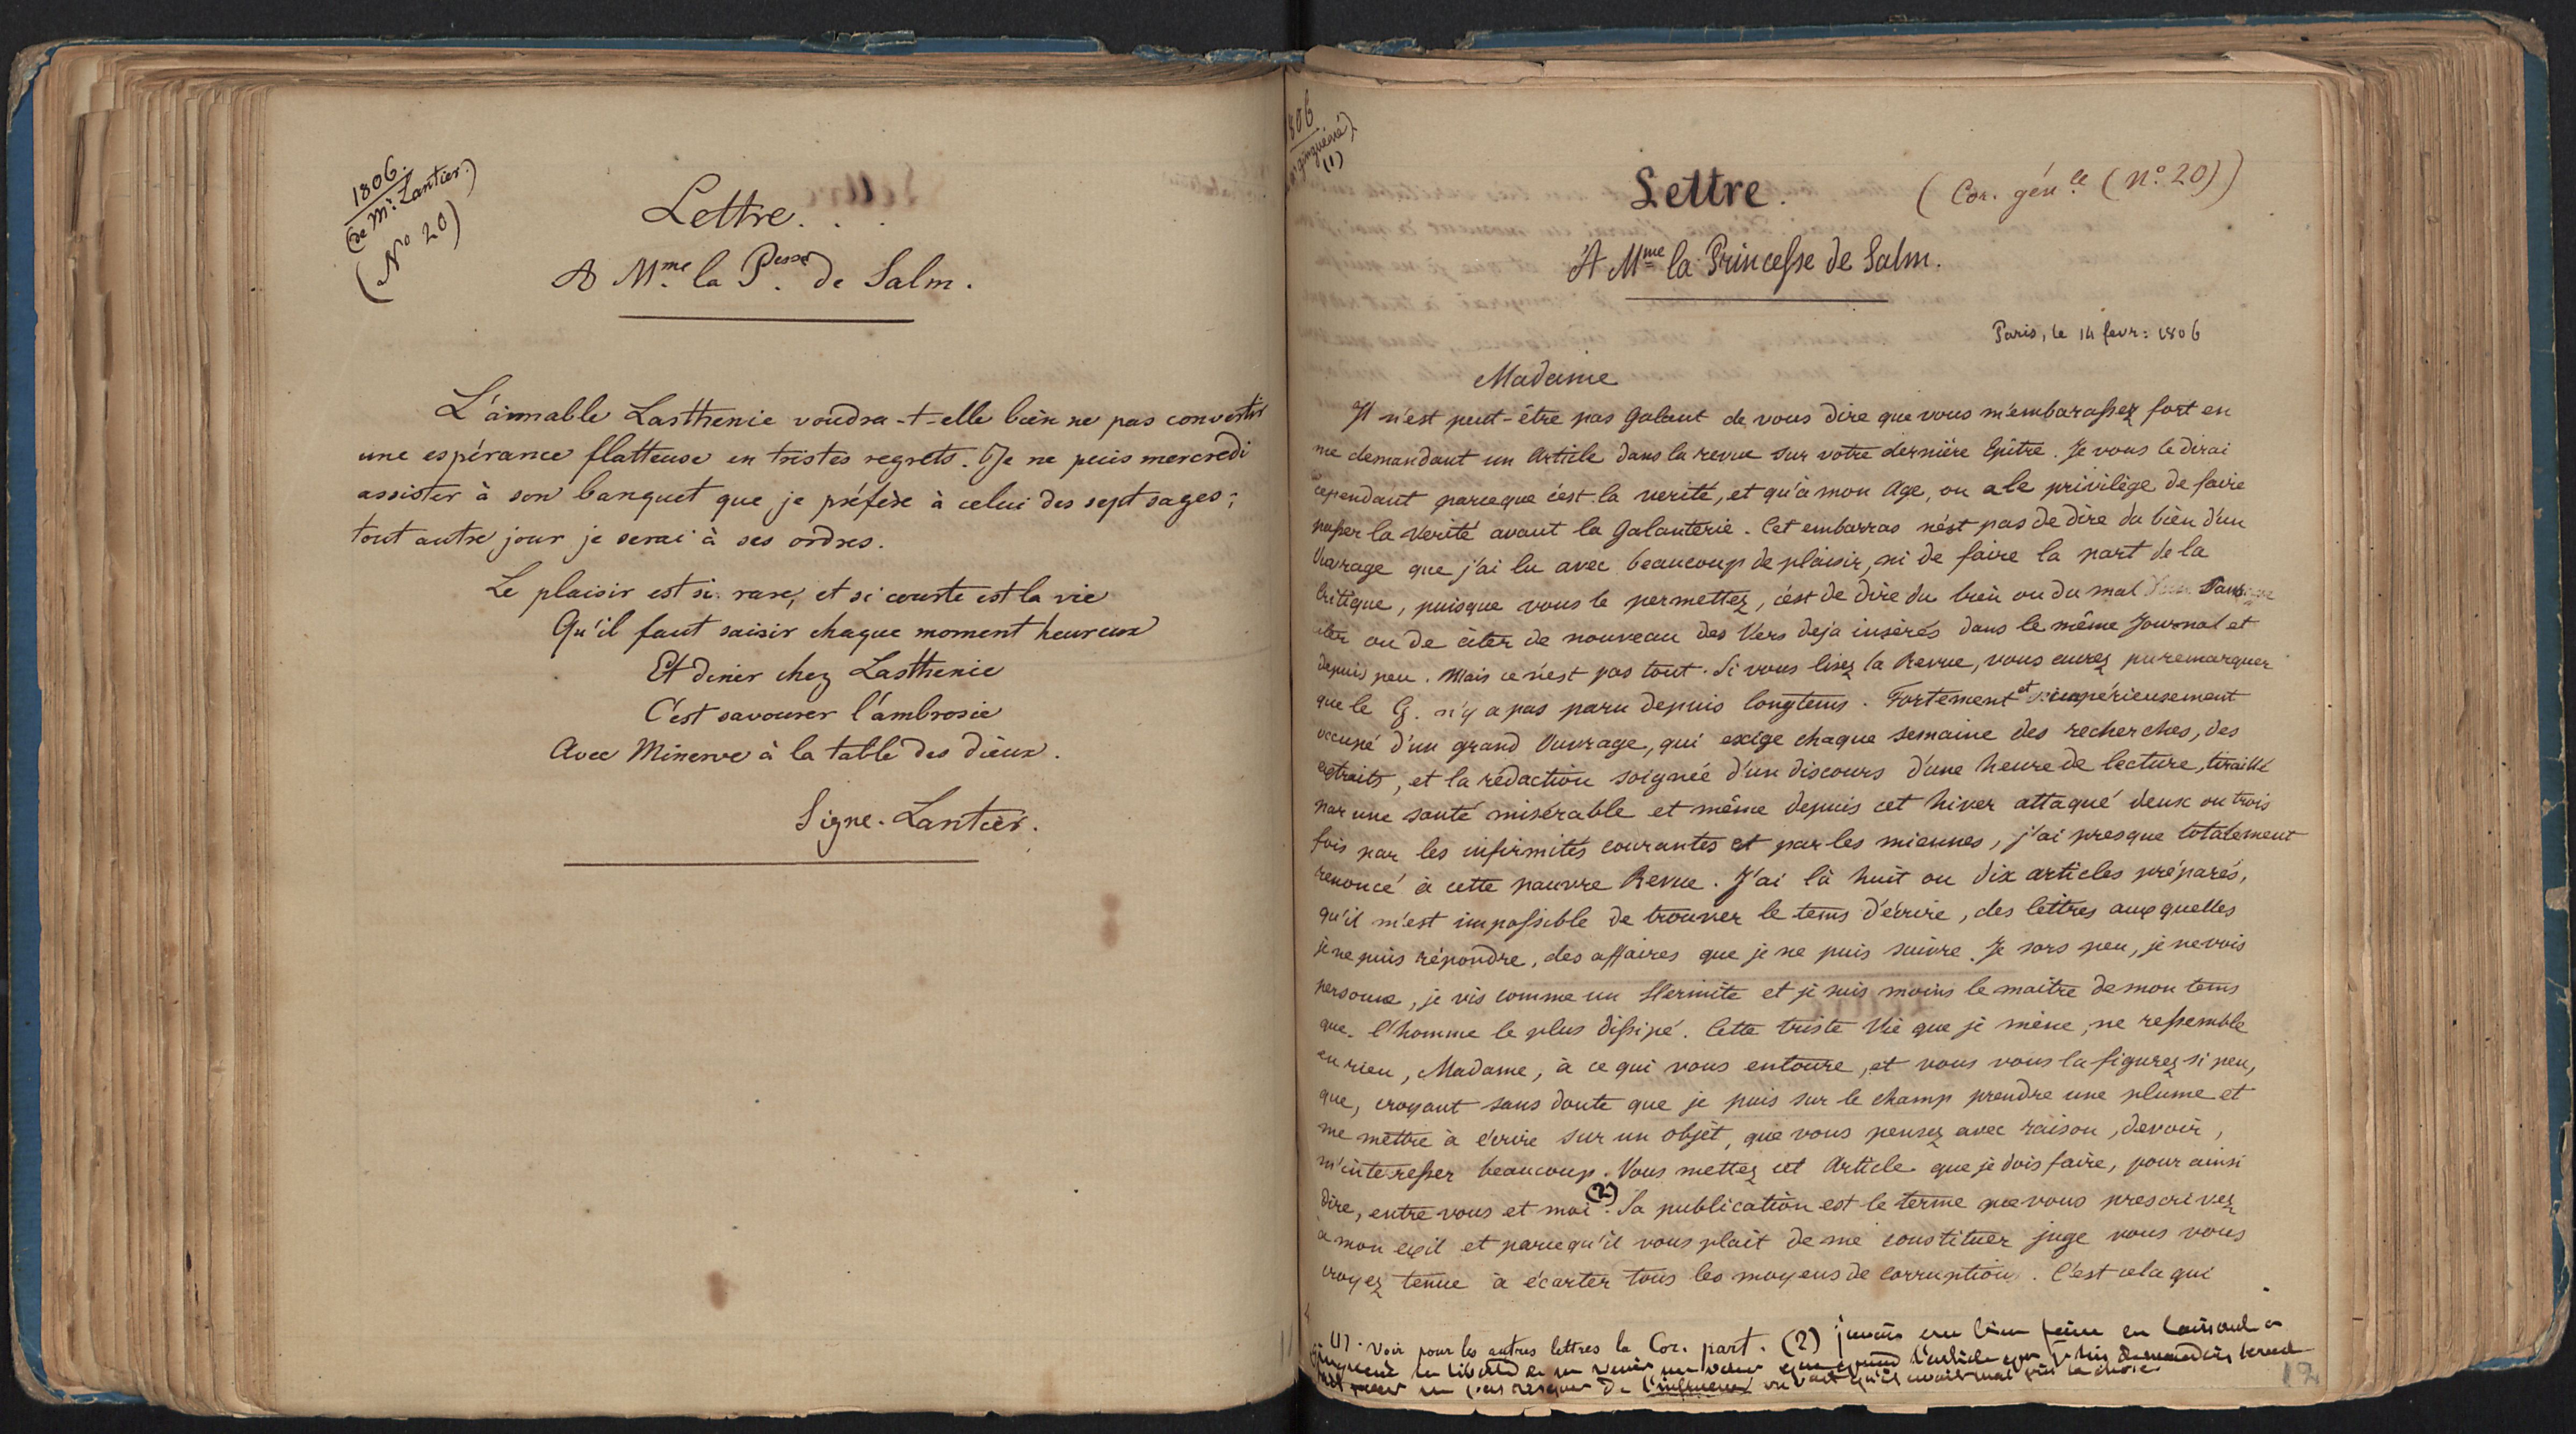 1806.
(de Mr. Lantier.)
(No 20)
Lettre. . .
A Mme. la Pesse. de Salm.
L'aimable Lasthenie voudra-t-elle bien ne pas convertir
une espérance flatteuse en tristes regrets. Je ne puis mercredi
assister à son banquet que je préfère à celui des sept sages;
tout autre jour je serai à ses ordres.
Le plaisir est si rare, et si courte est la vie
Qu'il faut saisir chaque moment heureux
Et diner chez Lasthenie
C'est savourer l'ambrosie
Avec Minerve à la table des dieux.
Signe. Lantier.
1806
(de Mr. Ginguéné)
(1)
Lettre.
(Cor. génle (No. 20))
A Mme la Princesse de Salm.
Paris, le 14 fevr: 1806
Madame
Il n'est peut-être pas galant de vous dire que vous m'embarassez fort en
me demandant un Article dans la revue sur votre dernière Epitre. Je vous le dirai
cependant parceque c'est la verité, et qu'à mon Age, on a le privilège de faire
passer la Verité avant la Galanterie. Cet embarras n'est pas de dire du bien d'un
Ouvrage que j'ai lu avec beaucoup de plaisir, ni de faire la part de la
Critique, puisque vous le permettez, c'est de dire du bien ou du mal sans rien
citer ou de citer de nouveau des Vers deja insérés dans le même Journal et
depuis peu. Mais ce n'est pas tout. Si vous lisez la Revue, vous aurez pu remarquer
que le G. n'y a pas paru depuis longtems. Fortement et impérieusement
occupé d'un grand Ouvrage, qui exige chaque semaine des recherches, des
extraits, et la rédaction soignée d'un discours d'une heure de lecture, tiraillé
par une santé misérable et même depuis cet hiver attaqué deux ou trois
fois par les infirmités courantes et par les miennes, j'ai presque totalement
renoncé à cette pauvre Revue. J'ai là huit ou dix articles préparés,
qu'il m'est impossible de trouver le tems d'écrire, des lettres auxquelles
je ne puis répondre, des affaires que je ne puis suivre. Je sors peu, je ne vois
personne, je vis comme un Hermite et je suis moins le maitre de mon tems
que l'homme le plus dissipé. Cette triste Vie que je mène, ne ressemble
en rien, Madame, à ce qui vous entoure, et vous vous la figurez si peu,
que, croyant sans doute que je puis sur le champ prendre une plume et
me mettre à écrire sur un objèt, que vous pensez avec raison, devoir,
m'interesser beaucoup. Vous mettez cet Article que je dois faire, pour ainsi
dire, entre vous et moi (2). Sa publication est le terme que vous prescrivez
à mon exil et parcequ'il vous plait de me constituer juge vous vous
croyez tenue à écarter tous les moyens de corruption. C'est cela qui
(1). Voir pour les autres lettres la Cor. part. (2) j'avais cru bien faire en laissant a
Ginguené la liberté de ne venir me voir que quand l'article que je lui demandais serait
de l'influence on voit qu'il avait mal pris la chose
12